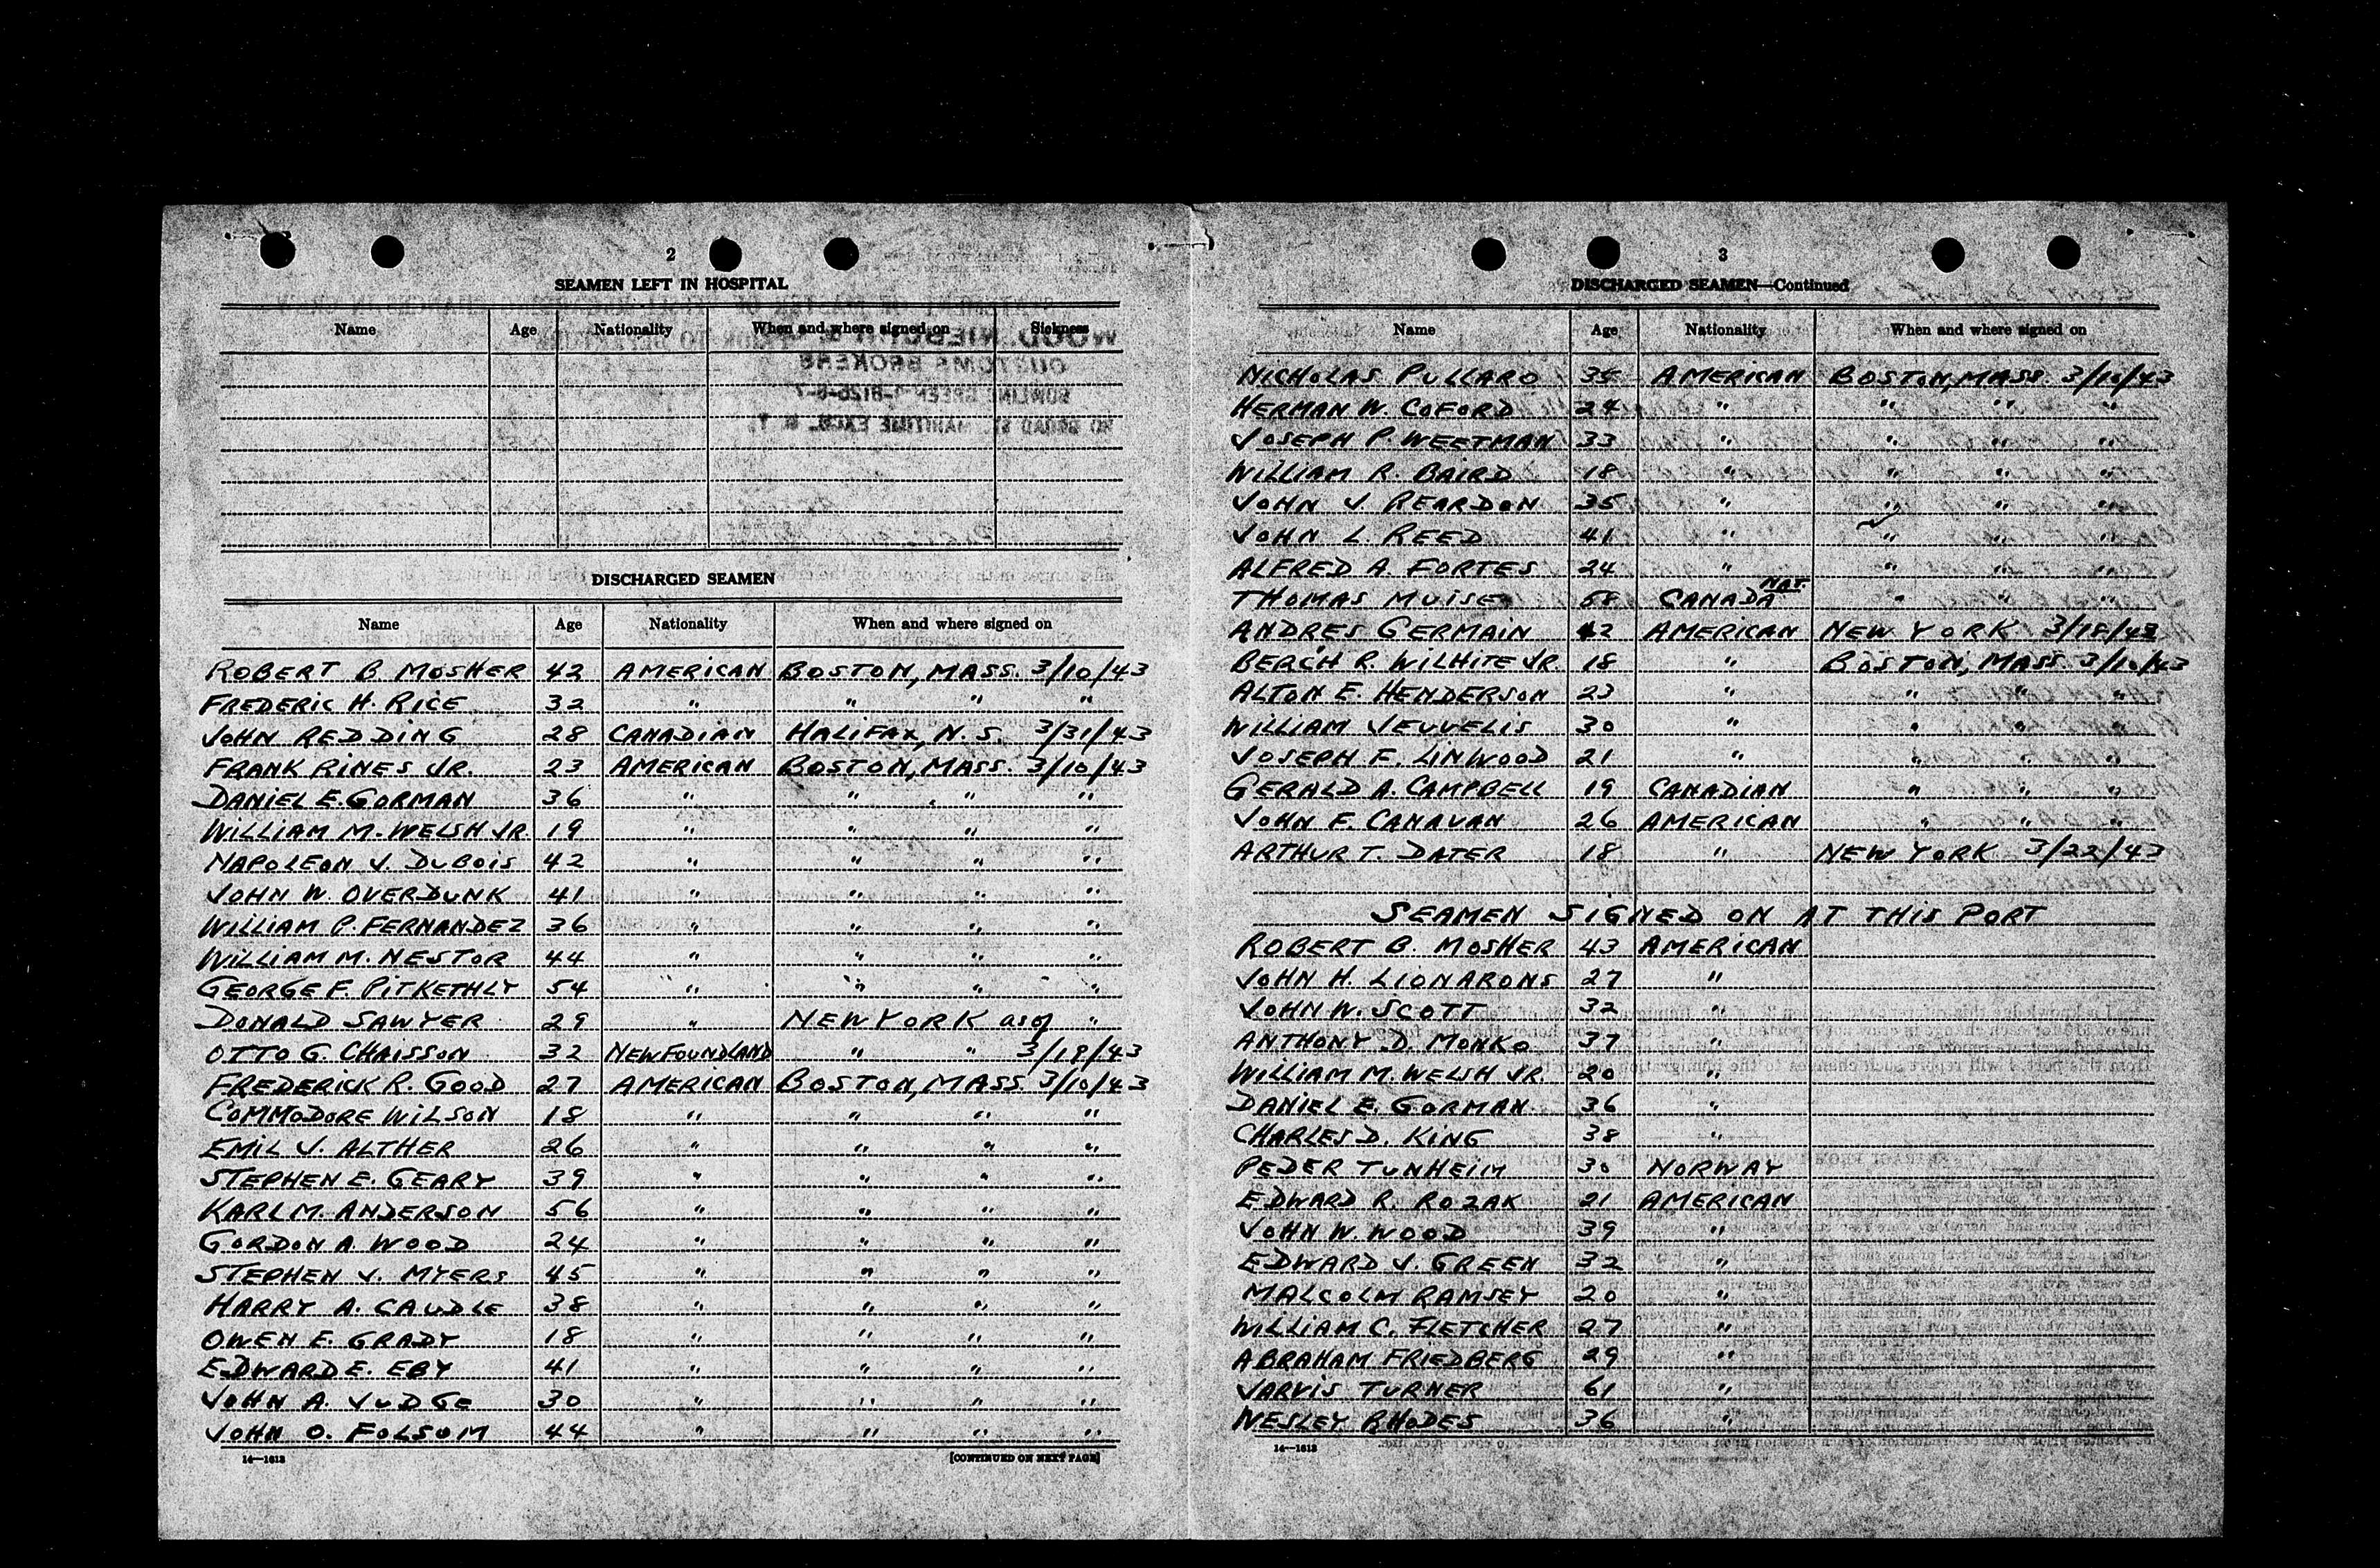 2
SEAMEN LEFT IN HOSPITAL
Name Age Nationality When and where signed on Sickness
DISCHARGED SEAMEN
Name Age Nationality When and where signed on
ROBERT B. MOSHER 42 AMERICAN BOSTON, MASS. 3/10/43
FREDERIC H. RICE 32 " " " "
JOHN REDDING 28 CANADIAN HALIFAX, N.S. 3/31/43
FRANK RINES JR. 23 AMERICAN BOSTON, MASS. 3/10/43
DANIEL E. GORMAN 36 " " " "
WILLIAM M. WELSH JR. 19 " " " "
NAPOLEON J. DUBOIS 42 " " " "
JOHN W. OVERDUNK 41 " " " "
WILLIAM P. FERNANDEZ 36 " " " "
WILLIAM M. NESTOR 44 " " " "
GEORGE F. PITKETHLY 54 " " " "
DONALD SAWYER 29 " NEW YORK as of "
OTTO G. CHAISSON 32 NEWFOUNDLAND " " 3/19/43
FREDERICK R. GOOD 27 AMERICAN BOSTON, MASS. 3/10/43
COMMODORE WILSON 18 " " " "
EMIL J. ALTHER 26 " " " "
STEPHEN E. GEARY 39 " " " "
KARL M. ANDERSON 56 " " " "
GORDON A. WOOD 24 " " " "
STEPHEN J. MYERS 45 " " " "
HARRY A. CAUDLE 38 " " " "
OWEN E. GRADY 18 " " " "
EDWARD E. EBY 41 " " " "
JOHN A. JUDGE 30 " " " "
JOHN O. FOLSOM 44 " " " "
14—1613 [CONTINUED ON NEXT PAGE]
3
DISCHARGED SEAMEN—Continued
Name Age Nationality When and where signed on
NICHOLAS PULLARO 35 AMERICAN BOSTON, MASS. 3/10/43
HERMAN W. COFORD 24 " " " "
JOSEPH P. WEETMAN 33 " " " "
WILLIAM R. BAIRD 18 " " " "
JOHN J. REARDON 35 " " " "
JOHN L. REED 41 " " " "
ALFRED A. FORTES 24 " " " "
THOMAS MUISE 58 CANADA NAT. " " "
ANDRES GERMAIN 42 AMERICAN NEW YORK 3/18/43
BERCH R. WILHITE JR. 18 " BOSTON, MASS. 3/10/43
ALTON E. HENDERSON 23 " " " "
WILLIAM JEUVELIS 30 " " " "
JOSEPH F. LINWOOD 21 " " " "
GERALD A. CAMPBELL 19 CANADIAN " " "
JOHN F. CANAVAN 26 AMERICAN " " "
ARTHUR T. DATER 18 " NEW YORK 3/22/43
SEAMEN SIGNED ON AT THIS PORT
ROBERT B. MOSHER 43 AMERICAN
JOHN H. LIONARONS 27 "
JOHN W. SCOTT 32 "
ANTHONY D. MONKO 37 "
WILLIAM M. WELSH JR. 20 "
DANIEL E. GORMAN 36 "
CHARLES D. KING 38 "
PEDER TUNHEIM 30 NORWAY
EDWARD R. ROZAK 21 AMERICAN
JOHN W. WOOD 39 "
EDWARD J. GREEN 32 "
MALCOLM RAMSEY 20 "
WILLIAM C. FLETCHER 27 "
ABRAHAM FRIEDBERG 29 "
JARVIS TURNER 61 "
WESLEY RHODES 36 "
14—1613